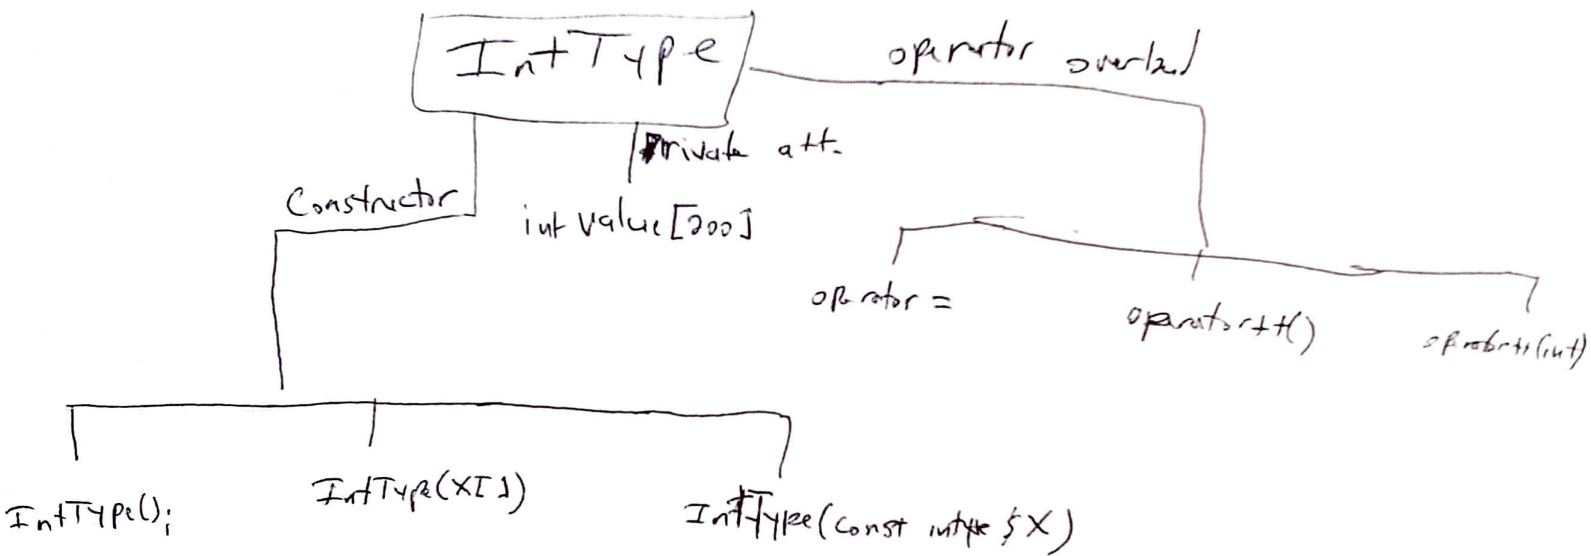 IntType
operator overload
private att.
Constructor
int value[200]
operator =
operator++()
operator++(int)
IntType();
IntType(X[])
IntType(const intype &X)